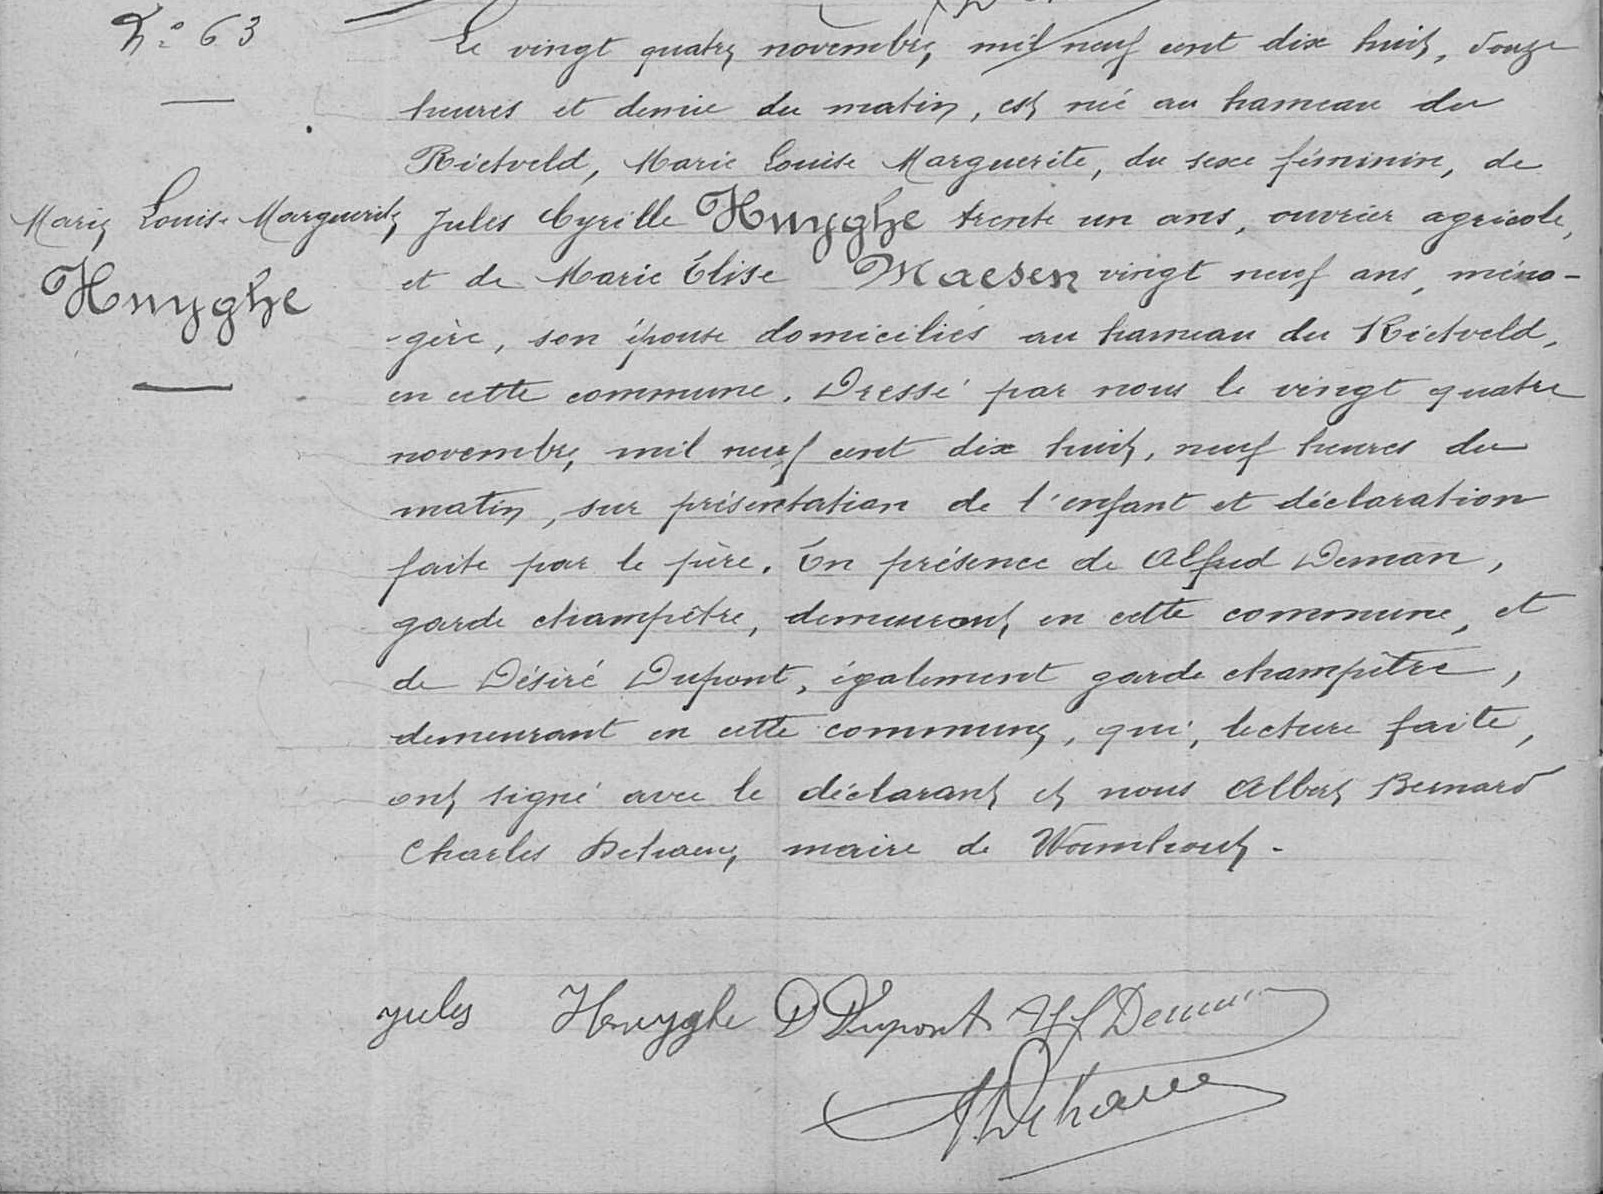 N° 63
Le vingt quatre novembre, mil neuf cent dix huit, douze
heures et demie du matin, est née au hameau du
Rietveld, Marie Louise Marguerite, du sexe féminin, de
Marie Louise Marguerite
Jules Cyrille Huyghe trente un ans, ouvrier agricole,
Huyghe
et de Marie Élise Maesen vingt neuf ans, ména-
-gère, son épouse domiciliés au hameau du Rietveld,
en cette commune. Dressé par nous le vingt quatre
novembre, mil neuf cent dix huit, neuf heures du
matin, sur présentation de l'enfant et déclaration
faite par le père. En présence de Alfred Deman,
garde champêtre, demeurant en cette commune, et
de Désiré Dupont, également garde champêtre,
demeurant en cette commune, qui, lecture faite,
ont signé avec le déclarant et nous Albert Bernard
Charles Dehaene, maire de Wormhout.
jules Huyghe D Dupont Alf Deman
A Dehaene